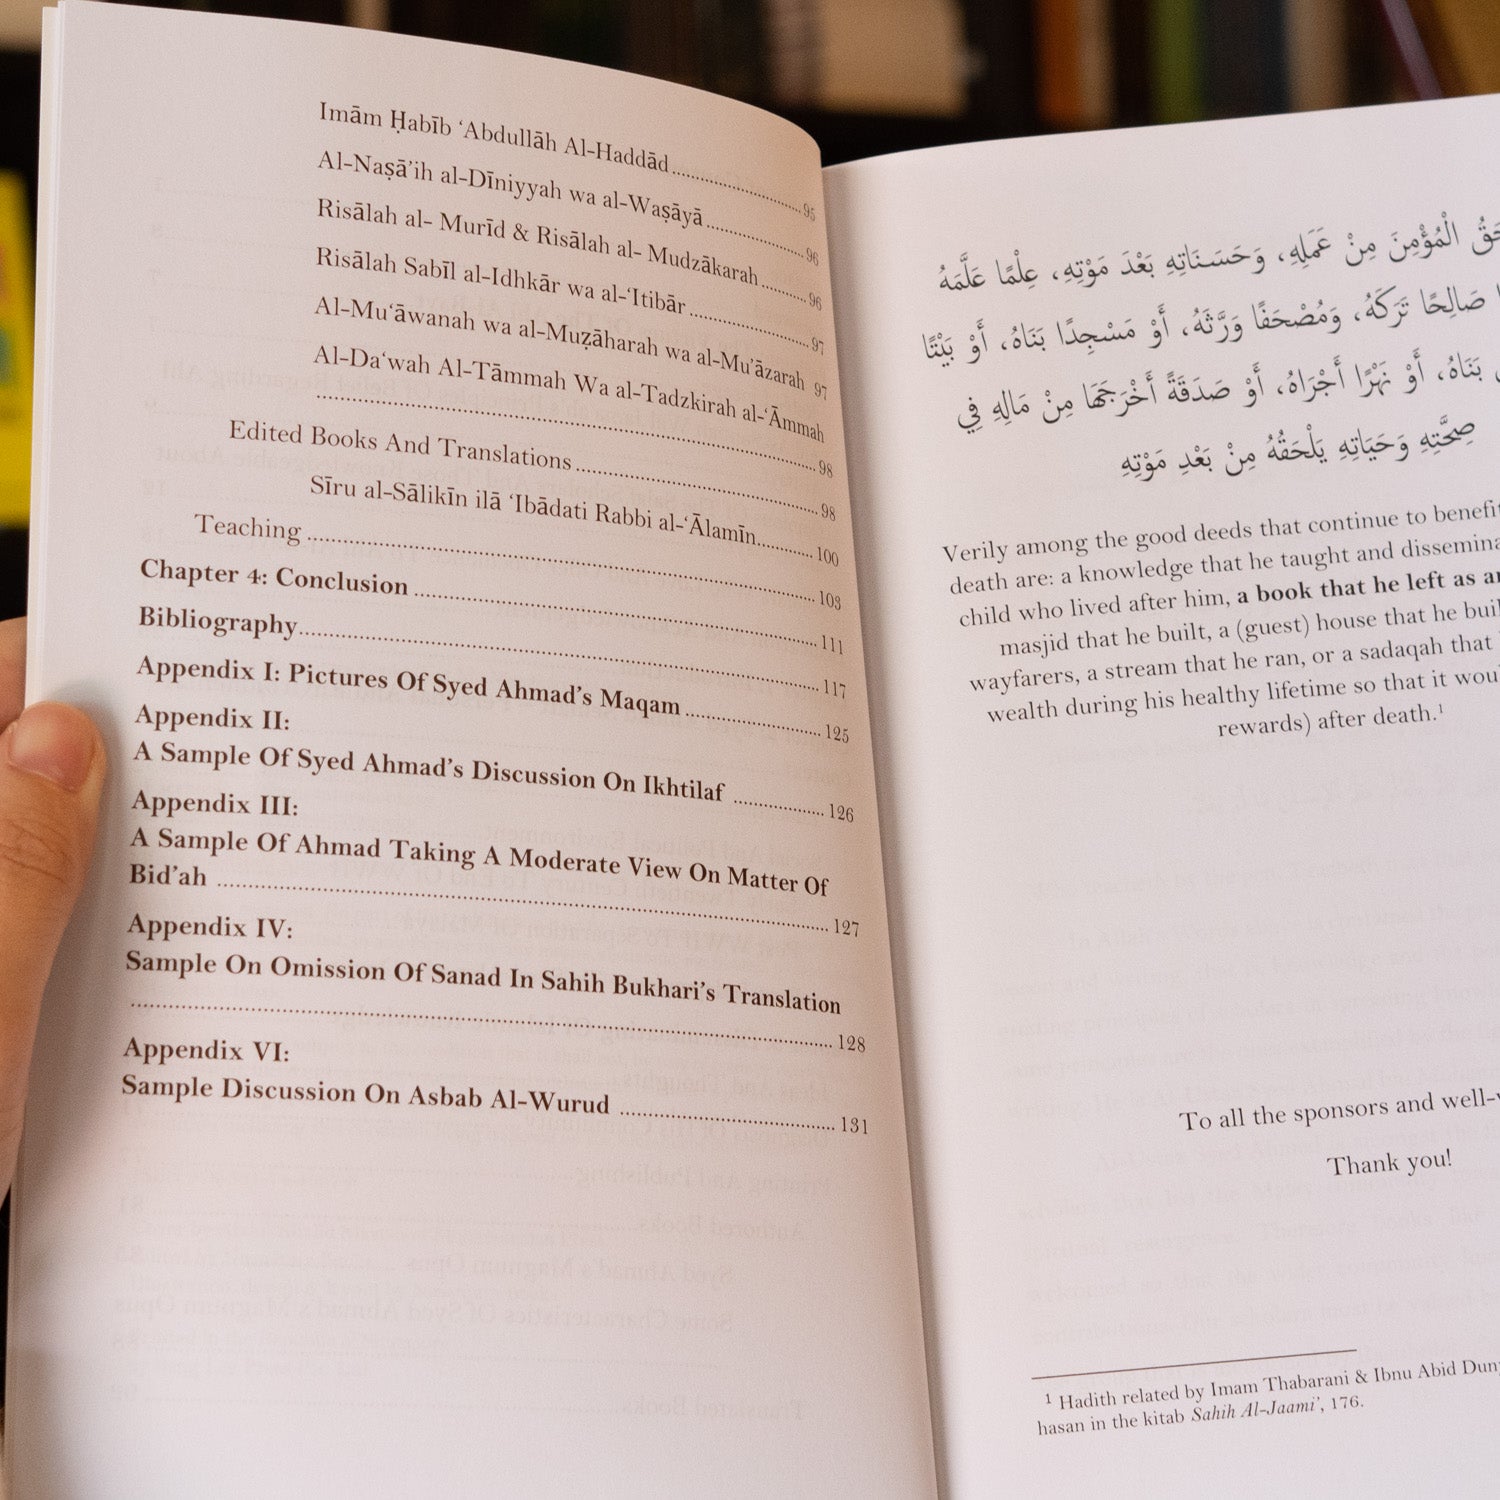 Imām Ḥabīb ‘Abdullāh Al-Haddād..........95
Al-Naṣā’ih al-Dīniyyah wa al-Waṣāyā..........96
Risālah al- Murīd & Risālah al- Mudzākarah..........96
Risālah Sabīl al-Idhkār wa al-‘Itibār..........97
Al-Mu‘āwanah wa al-Muẓāharah wa al-Mu’āzarah 97
Al-Da‘wah Al-Tāmmah Wa al-Tadzkirah al-‘Āmmah
..........98
Edited Books And Translations..........98
Sīru al-Sālikīn ilā ‘Ibādati Rabbi al-‘Ālamīn..........100
Teaching ..........103
Chapter 4: Conclusion ..........111
Bibliography..........117
Appendix I: Pictures Of Syed Ahmad’s Maqam ..........125
Appendix II:
A Sample Of Syed Ahmad’s Discussion On Ikhtilaf ..........126
Appendix III:
A Sample Of Ahmad Taking A Moderate View On Matter Of
Bid’ah ..........127
Appendix IV:
Sample On Omission Of Sanad In Sahih Bukhari’s Translation
..........128
Appendix VI:
Sample Discussion On Asbab Al-Wurud ..........131
الْمُؤْمِنَ مِنْ عَمَلِهِ، وَحَسَنَاتِهِ بَعْدَ مَوْتِهِ، عِلْمًا عَلَّمَهُ
صَالِحًا تَرَكَهُ، وَمُصْحَفًا وَرَّثَهُ، أَوْ مَسْجِدًا بَنَاهُ، أَوْ بَيْتًا
بَنَاهُ، أَوْ نَهْرًا أَجْرَاهُ، أَوْ صَدَقَةً أَخْرَجَهَا مِنْ مَالِهِ فِي
صِحَّتِهِ وَحَيَاتِهِ يَلْحَقُهُ مِنْ بَعْدِ مَوْتِهِ
Verily among the good deeds that continue to benefit
death are: a knowledge that he taught and dissemina
child who lived after him, a book that he left as an
masjid that he built, a (guest) house that he buil
wayfarers, a stream that he ran, or a sadaqah that
wealth during his healthy lifetime so that it wou
rewards) after death.¹
To all the sponsors and well-
Thank you!
¹ Hadith related by Imam Thabarani & Ibnu Abid Dun
hasan in the kitab Sahih Al-Jaami’, 176.